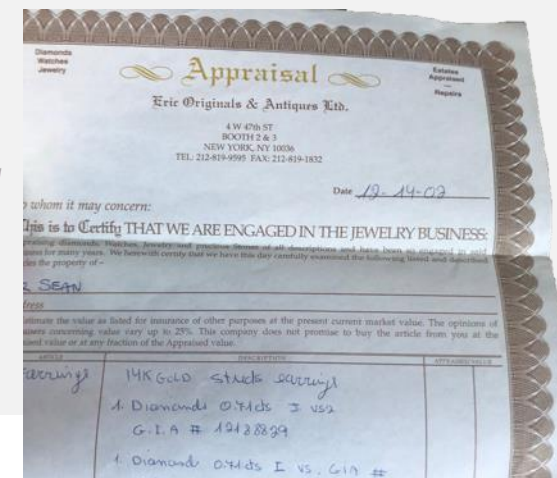 Diamonds
Watches
Jewelry
Appraisal
Estates
Appraised
Repairs
Eric Originals & Antiques Ltd.
4 W 47th ST
BOOTH 2 & 3
NEW YORK, NY 10036
TEL: 212-819-9595 FAX: 212-819-1832
Date 12-14-02
whom it may concern:
This is to Certify THAT WE ARE ENGAGED IN THE JEWELRY BUSINESS:
appraising diamonds, Watches, Jewelry and precious Stones of all descriptions and have been so engaged in said
for many years. We herewith certify that we have this day carefully examined the following listed and described
the property of –
SEAN
the value as listed for insurance of other purposes at the present current market value. The opinions of
concerning value vary up to 25%. This company does not promise to buy the article from you at the
value or at any fraction of the Appraised value.
ARTICLE DESCRIPTION APPRAISED VALUE
earrings 14K GOLD studs earrings
1. Diamonds 0.71cts I VS2
G.I.A # 12138839
1. Diamonds 0.71cts I VS. GIA #